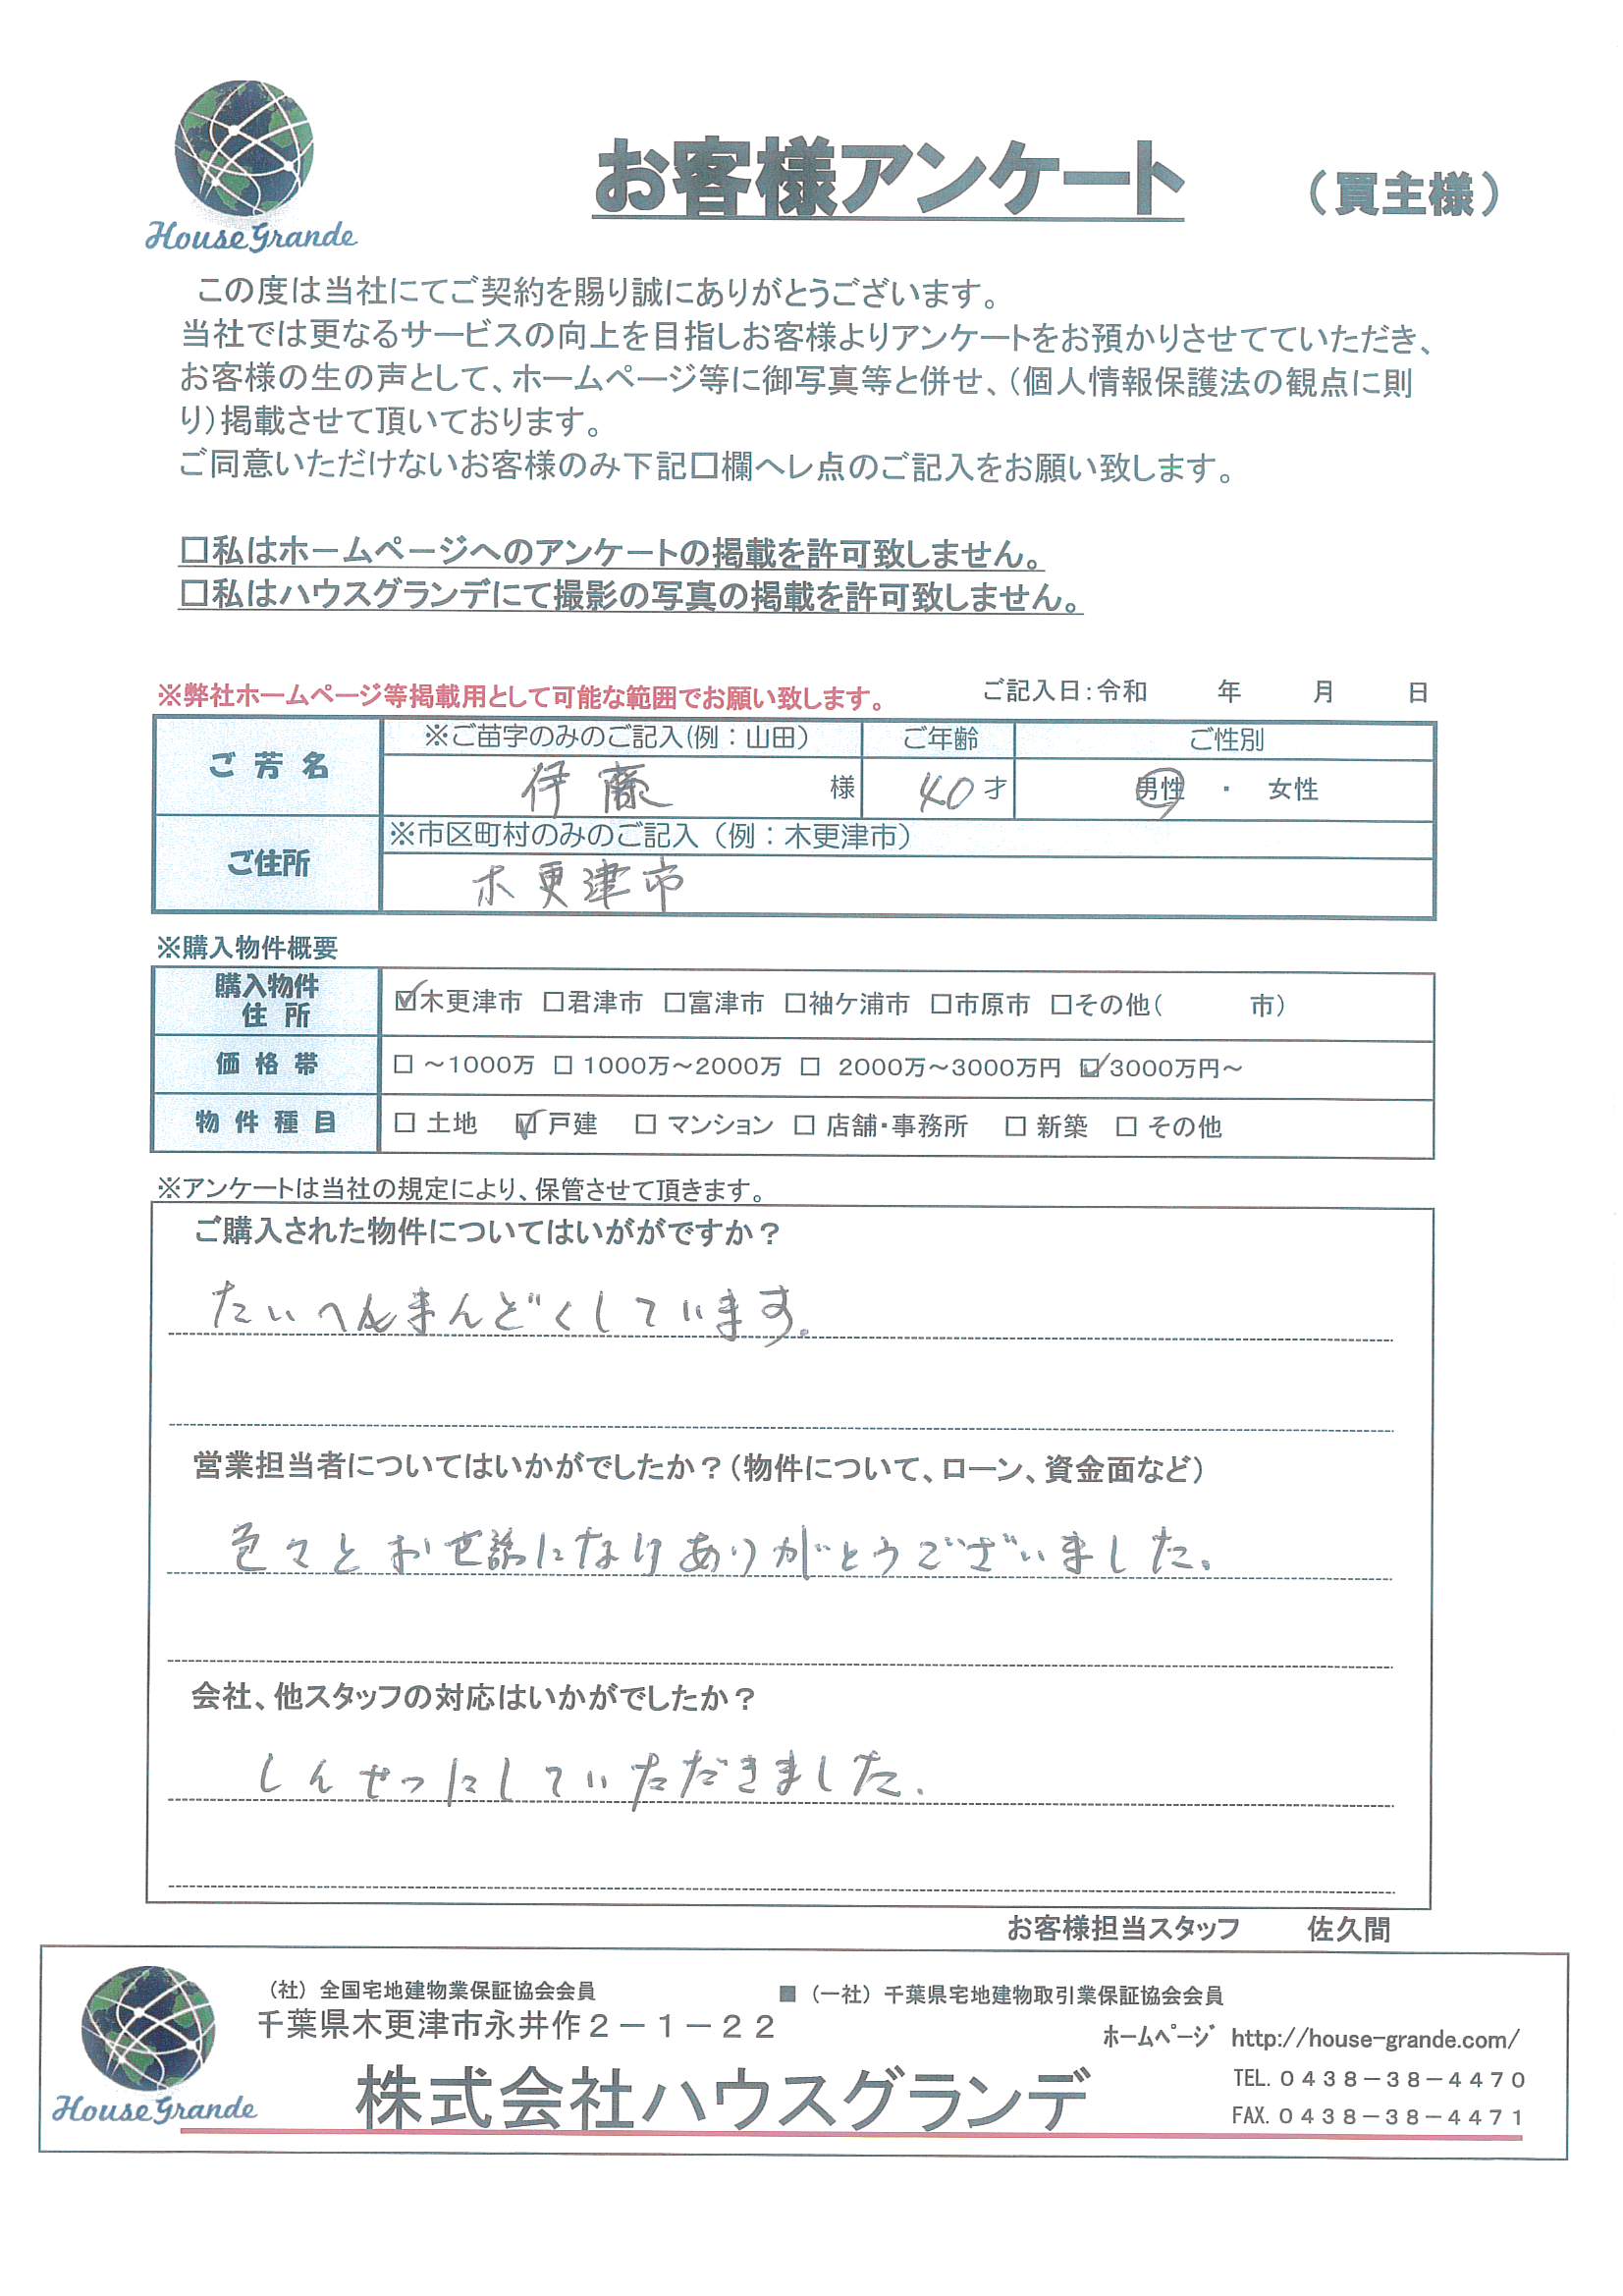 House Grande
お客様アンケート (買主様)
この度は当社にてご契約を賜り誠にありがとうございます。
当社では更なるサービスの向上を目指しお客様よりアンケートをお預かりさせてていただき、
お客様の生の声として、ホームページ等に御写真等と併せ、(個人情報保護法の観点に則
り)掲載させて頂いております。
ご同意いただけないお客様のみ下記口欄へレ点のご記入をお願い致します。
□私はホームページへのアンケートの掲載を許可致しません。
□私はハウスグランデにて撮影の写真の掲載を許可致しません。
※弊社ホームページ等掲載用として可能な範囲でお願い致します。 ご記入日:令和 年 月 日
ご芳名 ※ご苗字のみのご記入(例:山田) ご年齢 ご性別
伊藤 様 40才 男性 ・ 女性
ご住所 ※市区町村のみのご記入(例:木更津市)
木更津市
※購入物件概要
購入物件
住所 ☑木更津市 □君津市 □富津市 □袖ケ浦市 □市原市 □その他( 市)
価格帯 □ ～1000万 □ 1000万～2000万 □ 2000万～3000万円 ☑3000万円～
物件種目 □ 土地 ☑戸建 □ マンション □ 店舗・事務所 □ 新築 □ その他
※アンケートは当社の規定により、保管させて頂きます。
ご購入された物件についてはいががですか?
たいへんまんどくしています。
営業担当者についてはいかがでしたか?(物件について、ローン、資金面など)
色々とお世話になりありがとうございました。
会社、他スタッフの対応はいかがでしたか?
しんせつにしていただきました。
お客様担当スタッフ 佐久間
(社)全国宅地建物業保証協会会員 ■(一社)千葉県宅地建物取引業保証協会会員
千葉県木更津市永井作2-1-22
ﾎｰﾑﾍﾟｰｼﾞ http://house-grande.com/
House Grande
株式会社ハウスグランデ
TEL.0438-38-4470
FAX.0438-38-4471